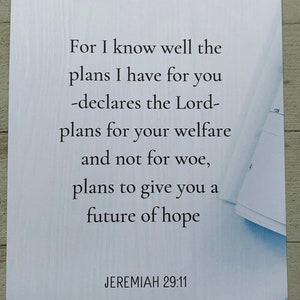 For I know well the
plans I have for you
-declares the Lord-
plans for your welfare
and not for woe,
plans to give you a
future of hope
JEREMIAH 29:11